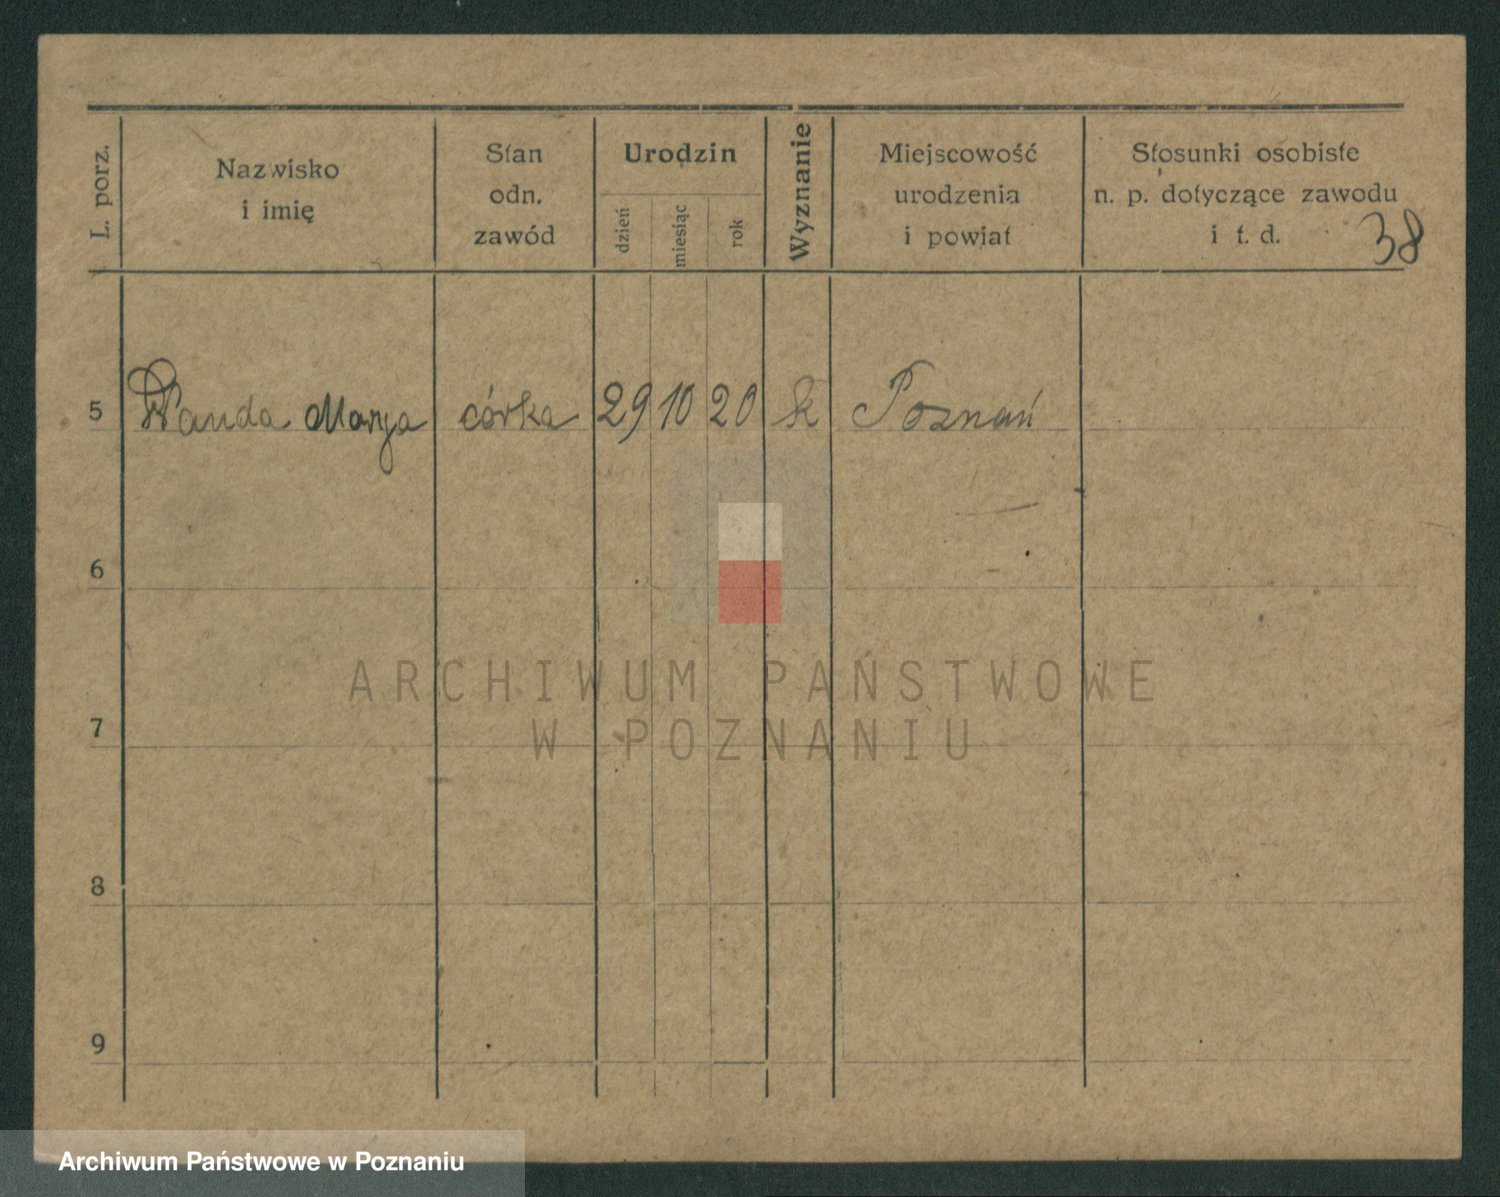 L. porz.
Nazwisko
i imię
Stan
odn.
zawód
Urodzin
dzień
miesiąc
rok
Wyznanie
Miejscowość
urodzenia
i powiat
Stosunki osobiste
n. p. dotyczące zawodu
i t. d.
38
5 Wanda Marya córka 29 10 20 k Poznań
6
7
8
9
ARCHIWUM PAŃSTWOWE
W POZNANIU
Archiwum Państwowe w Poznaniu